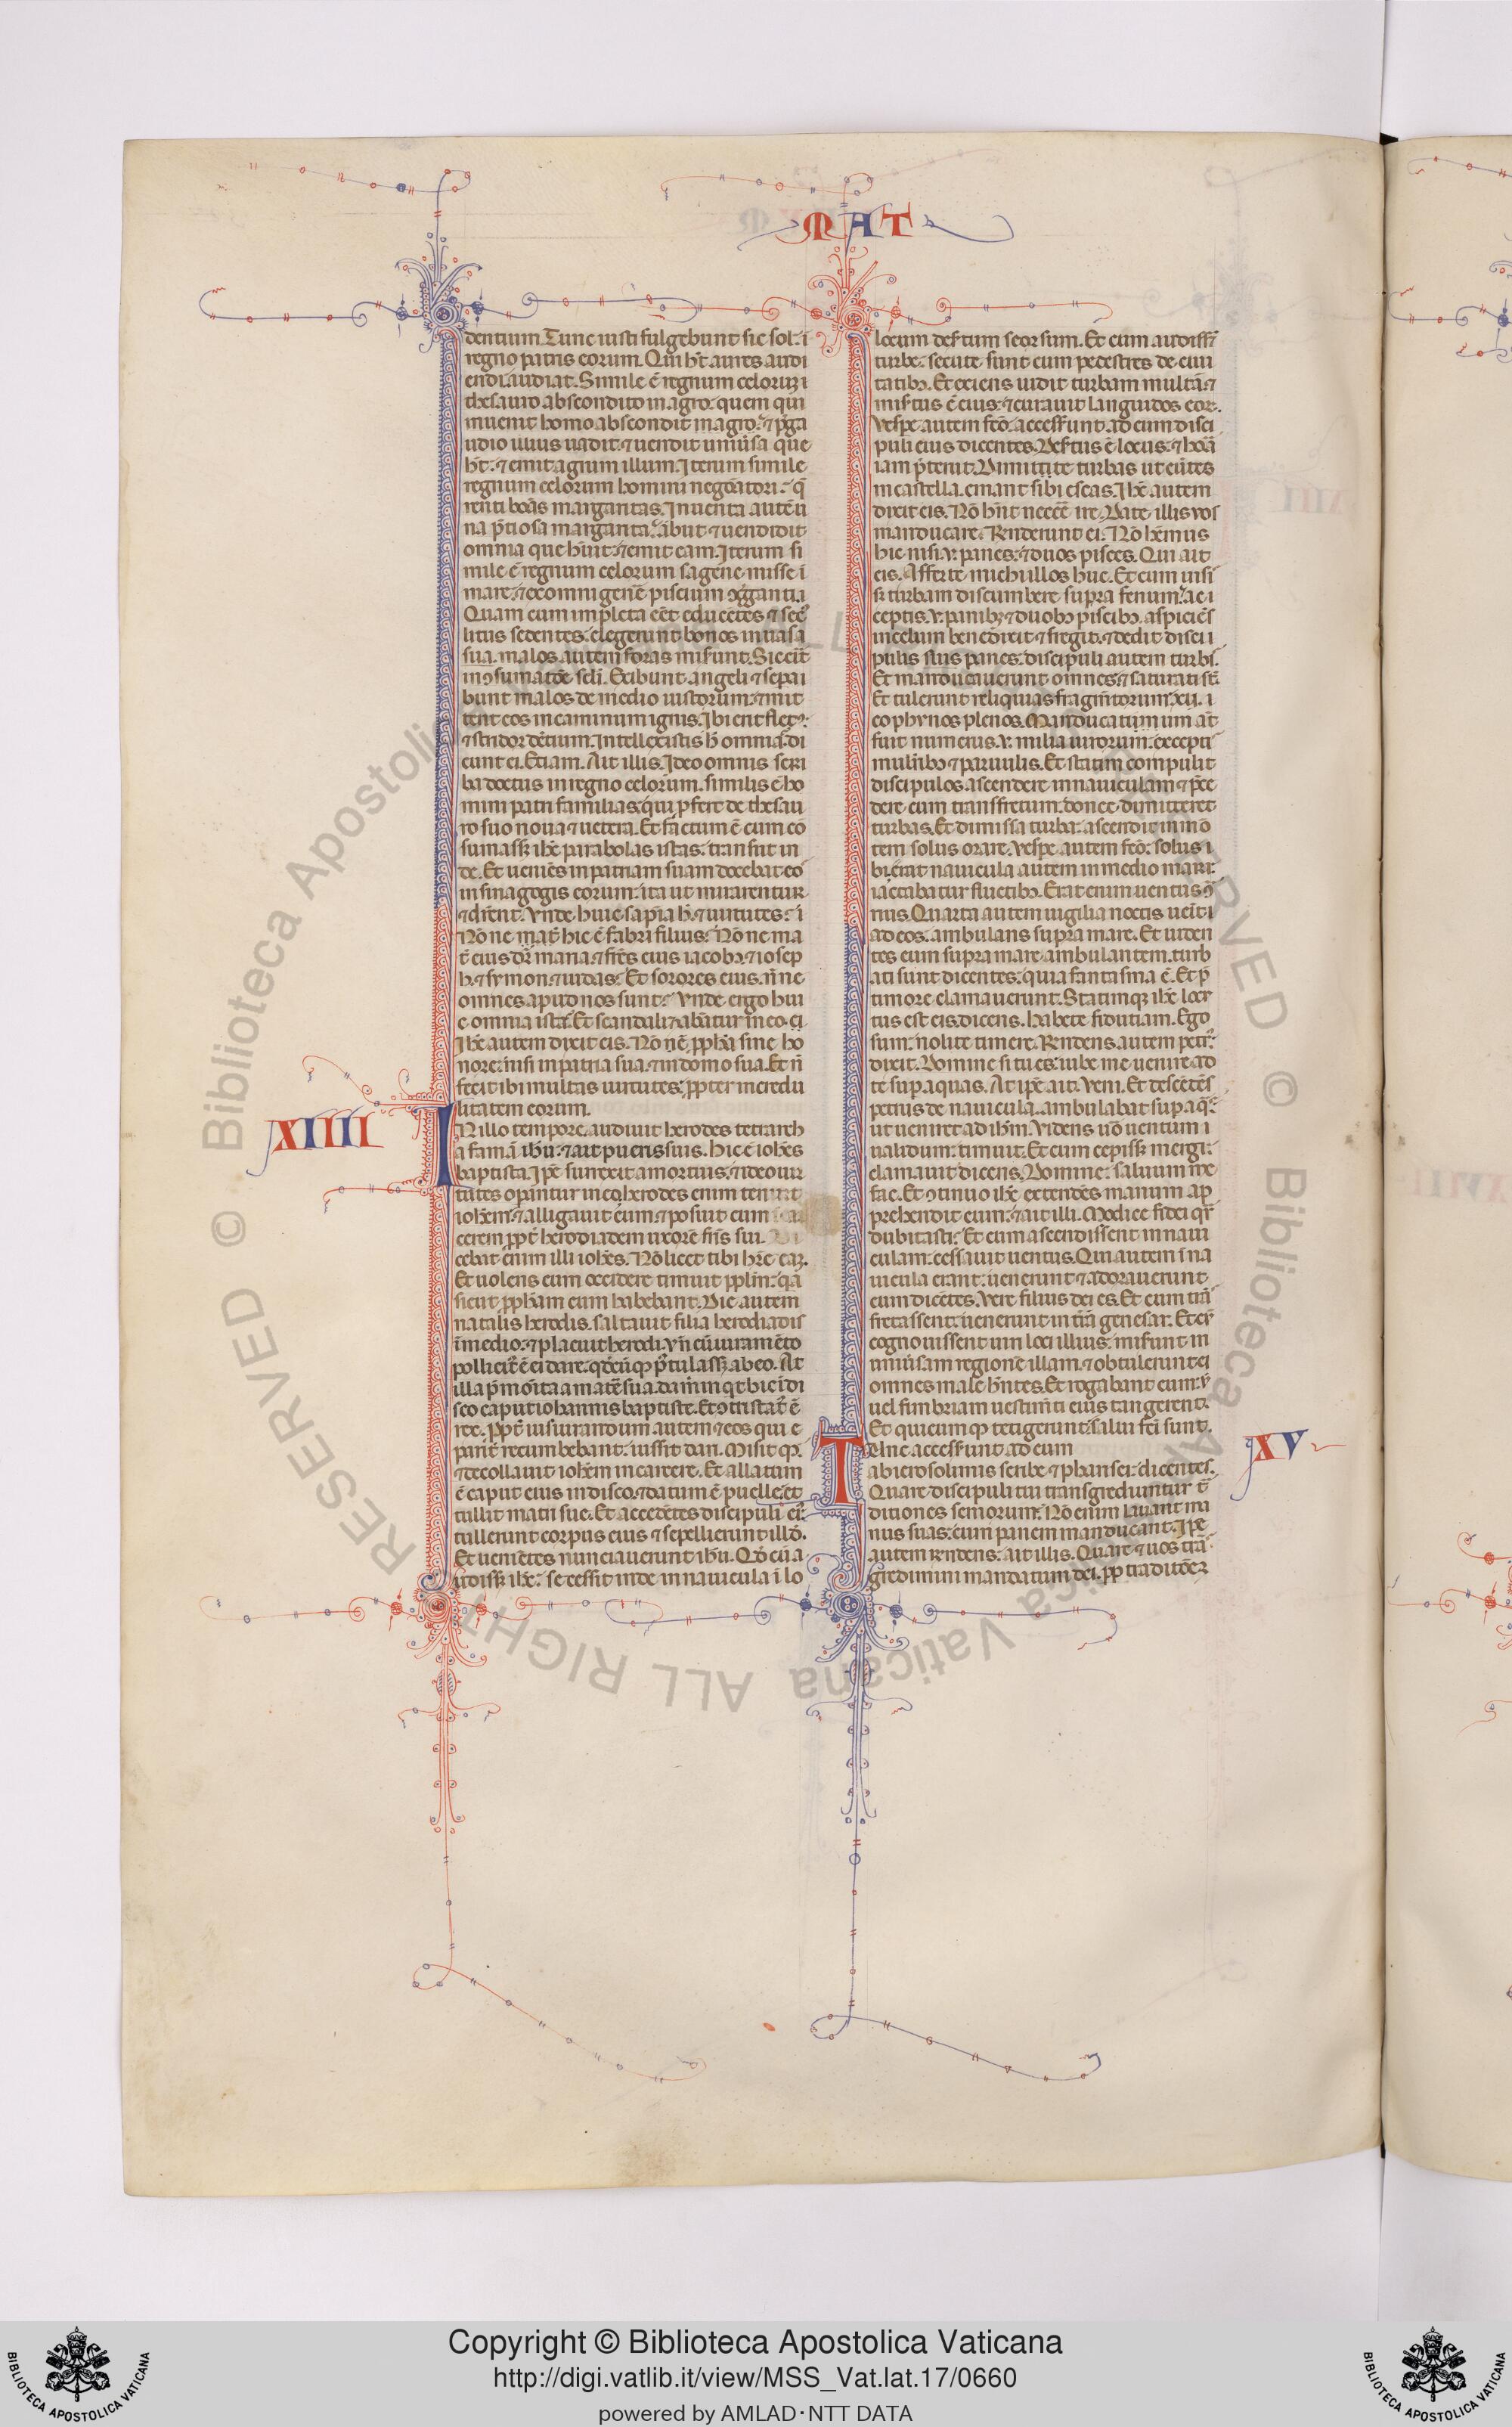 MAT
dentium. Tunc iusti fulgebunt sic sol. ı̄
regno patris eorum. Qui hꝫ̄t aures audi
endi audiat. Simile ē regnum celorum ı
thesauro abscondito in agro. quem qui
inuenit homo abscondit in agro. ⁊ p̄ ga
udio illius uadit. ⁊ uendit uniũsa que
hꝫ̄t. ⁊ emit agrum illum. Iterum simile
regnum celorum homini negōtiatori. q̄
renti bōas margaritas. Inuenta autē u
na p̄tiosa margarita. abiit ⁊ uendidit
omnia que hūit. ⁊ emit eam. Iterum si
mile ē regnum celorum sagene misse ī
mare. ⁊ ex omni genē piscium ꝯg̃ganti.
Quam cum impleta eēt educētes ⁊ sec̄
litus sedentes. elegerunt bonos in uasa
sua. malos autem foras mis̄unt. Sic eı̄t
in ꝯsumatōe sc̄li. Exibunt angeli ⁊ sepa
bunt malos de medio iustorum. ⁊ mit
tent eos in caminum ignis. Ibi ēnt flet᷒.
⁊ stridor dētium. Intellexistis h̄ omnia. di
cunt ei. Etiam. Ait illis. Ideo omnis scri
ba doctus in regno celorum. similis ē ho
mini patri familias. qui ꝓfert de thesau
ro suo noua ⁊ uetera. Et factum ē cum cō
sumass̄ ih̄c parabolas istas. transiit in
de. Et ueniēs in patriam suam docebat eo
in sinagogis eorum. ita ut mirarentur
⁊ dic̄ent. Vnde huic sapīa h̄ ⁊ uirtutes. ī
Nōne mat̄ hic ē fabri filius. Nōne ma
t̄ eius dr̄ maria. ⁊ frēs eius iacob᷒. ⁊ iosep
h. ⁊ symon ⁊ iudas. Et sorores eius. n̄ne
omnes apud nos sunt. Vnde ergo hui
c omnia ista. Et scandalizabātur in eo.
Ih̄c autem dixit eis. Nō nē ꝓph̄a sine ho
nore. nisi in patria sua. ⁊ in domo sua. Et n̄
fecit ibi multas uirtutes. ꝓpter incredu
litatem eorum.
XIIII
IN illo tempore. audiuit herodes tetrarch
a famā ih̄u. ⁊ ait pueris suis. Hic ē ioh̄es
baptista. Ip̄e surrexit a mortuis. ⁊ ideo uir
tutes opāntur in eo. herodes enim tenuit
ioh̄em. ⁊ alligauit eum. ⁊ posuit eum
cerem ꝓpt̄ herodiadem uxorē fr̄is sui.
cebat enim illi ioh̄es. Nō licet tibi h̄re eaꝫ.
Et uolens eum occidere timuit ppl̄m. qa
sicut ꝓph̄am eum habebant. Die autem
natalis herodis. saltauit filia herodiadis
ī medio. ⁊ placuit herodi. vn̄ cū iuramēto
pollicit᷒ ē ei dare. qd̄cūqꝫ p̄tulass̄ ab eo. At
illa p̄monita a matē sua. da m̄ inqt hic ī di
sco caput iohannis baptiste. Et ꝯtristat᷒ ē
rex. ꝓpt̄ iusiurandum autem ⁊ eos qui
parit̄ recumbebant. iussit dari. Misit qꝫ
⁊ decollauit ioh̄em in carcere. Et allatum
ē caput eius in disco. ⁊ datum ē puelle. et
tullit matri sue. Et accedētes discipuli ei᷒.
tullerunt corpus eius ⁊ sepellierunt illd̄.
Et uenietes nunciauerunt ih̄u. Qd̄ cū a
udiss̄ ih̄c. secessit inde in nauicula ī lo
locum des̄tum seorsum. Et cum audiss̄
turbe. secute sunt eum pedestres de ciui
tatib᷒. Et exiens uidit turbam multā. ⁊
mis̄tus ē eius. ⁊ curauit languidos eor.
Vesp̄e autem fc̄o. access̄unt ad eum disci
puli eius dicentes. Des̄tus ē locus. ⁊ hora
iam p̄terit. Dimittite turbas ut eūtes
in castella. emant sibi escas. Ih̄c autem
dixit eis. Nō hn̄t necc̄e ire. Date illis uos
manducare. Rn̄derunt ei. Nō hēmus
hic nisi .v. panes. ⁊ duos pisces. Qui ait
eis. Afferte michi illos huc. Et cum iusi
s̄ turbam discumbere supra fenum. ac
ceptis .v. panibꝫ ⁊ duob᷒ piscib᷒. aspiciēs
in celum benedixit ⁊ fregit. ⁊ dedit disci
pulis suis panes. discipuli autem turbis.
Et manducauerunt omnes. ⁊ saturati st̄.
Et tulerunt reliquias fragm̄torum. xii.
cophynos plenos. Manducatium um at̄
fuit num̄us .v. milia uirorum. exceptis
mulierib᷒ ⁊ paruulis. Et statim compulit
discipulos ascendere in nauiculam ⁊ p̄ce
dere eum transfretum. donec dimitteret
turbas. Et dimissa turba. ascendit in mō
tem solus orare. Vesp̄e autem fc̄o. solus i
bi erat. nauicula autem in medio mari.
iactabatur fluctib᷒. Erat enim uentus ꝯt
rius. Quarta autem uigilia noctis ueīt
ad eos. ambulans supra mare. Et uiden
tes eum supra mare ambulantem. turb
ati sunt dicentes. quia fantasma ē. Et p̄
timore clamauerunt. Statimqꝫ ih̄c locr
tus est eis. dicens. habete fidutiam. Ego
sum. nolite timere. Rn̄dens autem petr᷒
dixit. Domine si tu es. iube me uenire ad
te sup aquas. At ip̄e ait. Veni. Et descēdēs
petrus de nauicula. ambulabat sup aqs̄
ut ueniret ad ih̄m. Videns uo uentum
ualidum. timuit. Et cum cepiss̄ mergi.
clamauit dicens. Domine. saluum me
fac. Et ꝯtinuo ih̄c extendēs manum ap
prehendit eum. ⁊ ait illi. Modice fidei qr̄
dubitasti. Et cum ascendissent in naui
culam. cessauit uentus. Qui autem ī na
uicula erant. uenerunt ⁊ adorauerunt
eum dicētes. Vere filius dei es. Et cum trās
fretassent. uenerunt in tr̄a genesar. Et
cognouissent uiri loci illius. mis̄unt in
uniũsam regionē illam. ⁊ obtulerunt ei
omnes male hn̄tes. Et rogabant eum. ut
uel fimbriam uestim̄ti eius tangerent.
Et quicumqꝫ tetigerunt. salui fc̄i sunt.
XV
Tunc access̄unt ad eum
ab ierosolimis scribe. ⁊ pharisei. dicentes.
Quare discipuli tui transgrediuntur t̄
ditiones seniorum. Nō enim lauant ma
nus suas. cum panem manducant. Ip̄e
autem rn̄dens. ait illis. Quare ⁊ uos trās
gredimini mandatum dei. ꝓp traditōeꝫ
© Biblioteca Apostolica Vaticana ALL RIGHTS RESERVED
© Biblioteca Apostolica Vaticana ALL RIGHTS RESERVED
Copyright © Biblioteca Apostolica Vaticana
http://digi.vatlib.it/view/MSS_Vat.lat.17/0660
powered by AMLAD·NTT DATA
BIBLIOTECA APOSTOLICA VATICANA
BIBLIOTECA APOSTOLICA VATICANA